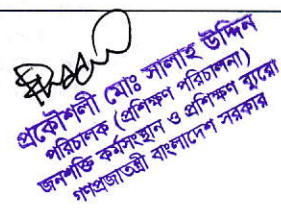 প্রকৌশলী মোঃ সালাহ উদ্দিন
পরিচালক (প্রশিক্ষণ পরিচালনা)
জনশক্তি কর্মসংস্থান ও প্রশিক্ষণ ব্যুরো
গণপ্রজাতন্ত্রী বাংলাদেশ সরকার